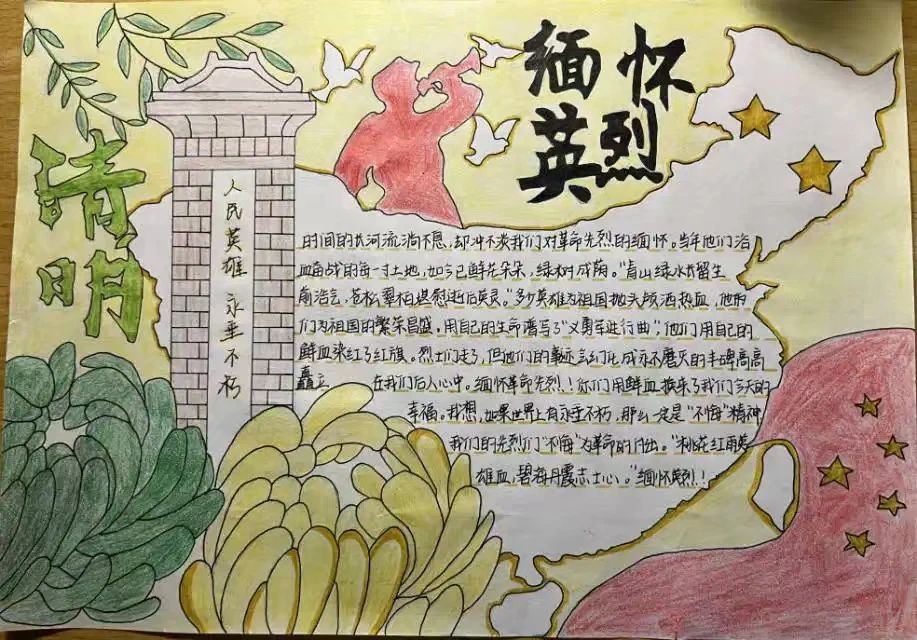 缅怀
英烈
清明
人民英雄 永垂不朽
时间的长河流淌不息，却冲不淡我们对革命先烈的缅怀。当年他们浴
血奋战的每一寸土地，如今已鲜花朵朵，绿树成荫。"青山绿水长留生
前浩气，苍松翠柏堪慰逝后英灵。"多少英雄为祖国抛头颅洒热血，他
们为祖国的繁荣昌盛，用自己的生命谱写了"义勇军进行曲"，他们用自己的
鲜血染红了红旗。烈士们走了，但他们的 化成永不磨灭的丰碑高高
矗立 在我们后人心中。缅怀革命先烈！你们用鲜血换来了我们今天的
幸福。我想，如果世界上有永垂不朽，那么一定是"不悔"精神
我们的先烈们"不悔"为革命的付出。"桃花红雨
雄血，碧海丹霞志士心。"缅怀英烈！